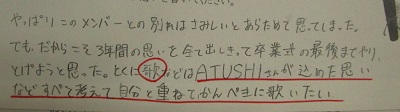 やっぱりこのメンバーとの別れはさみしいとあらためて思ってしまった。
でも、だからこそ3年間の思いを全て出しきって卒業式の最後までやり
とげようと思った。とくに歌などはATUSHIさんが込めた思い
などすべて考えて自分と重ねてかんぺきに歌いたい